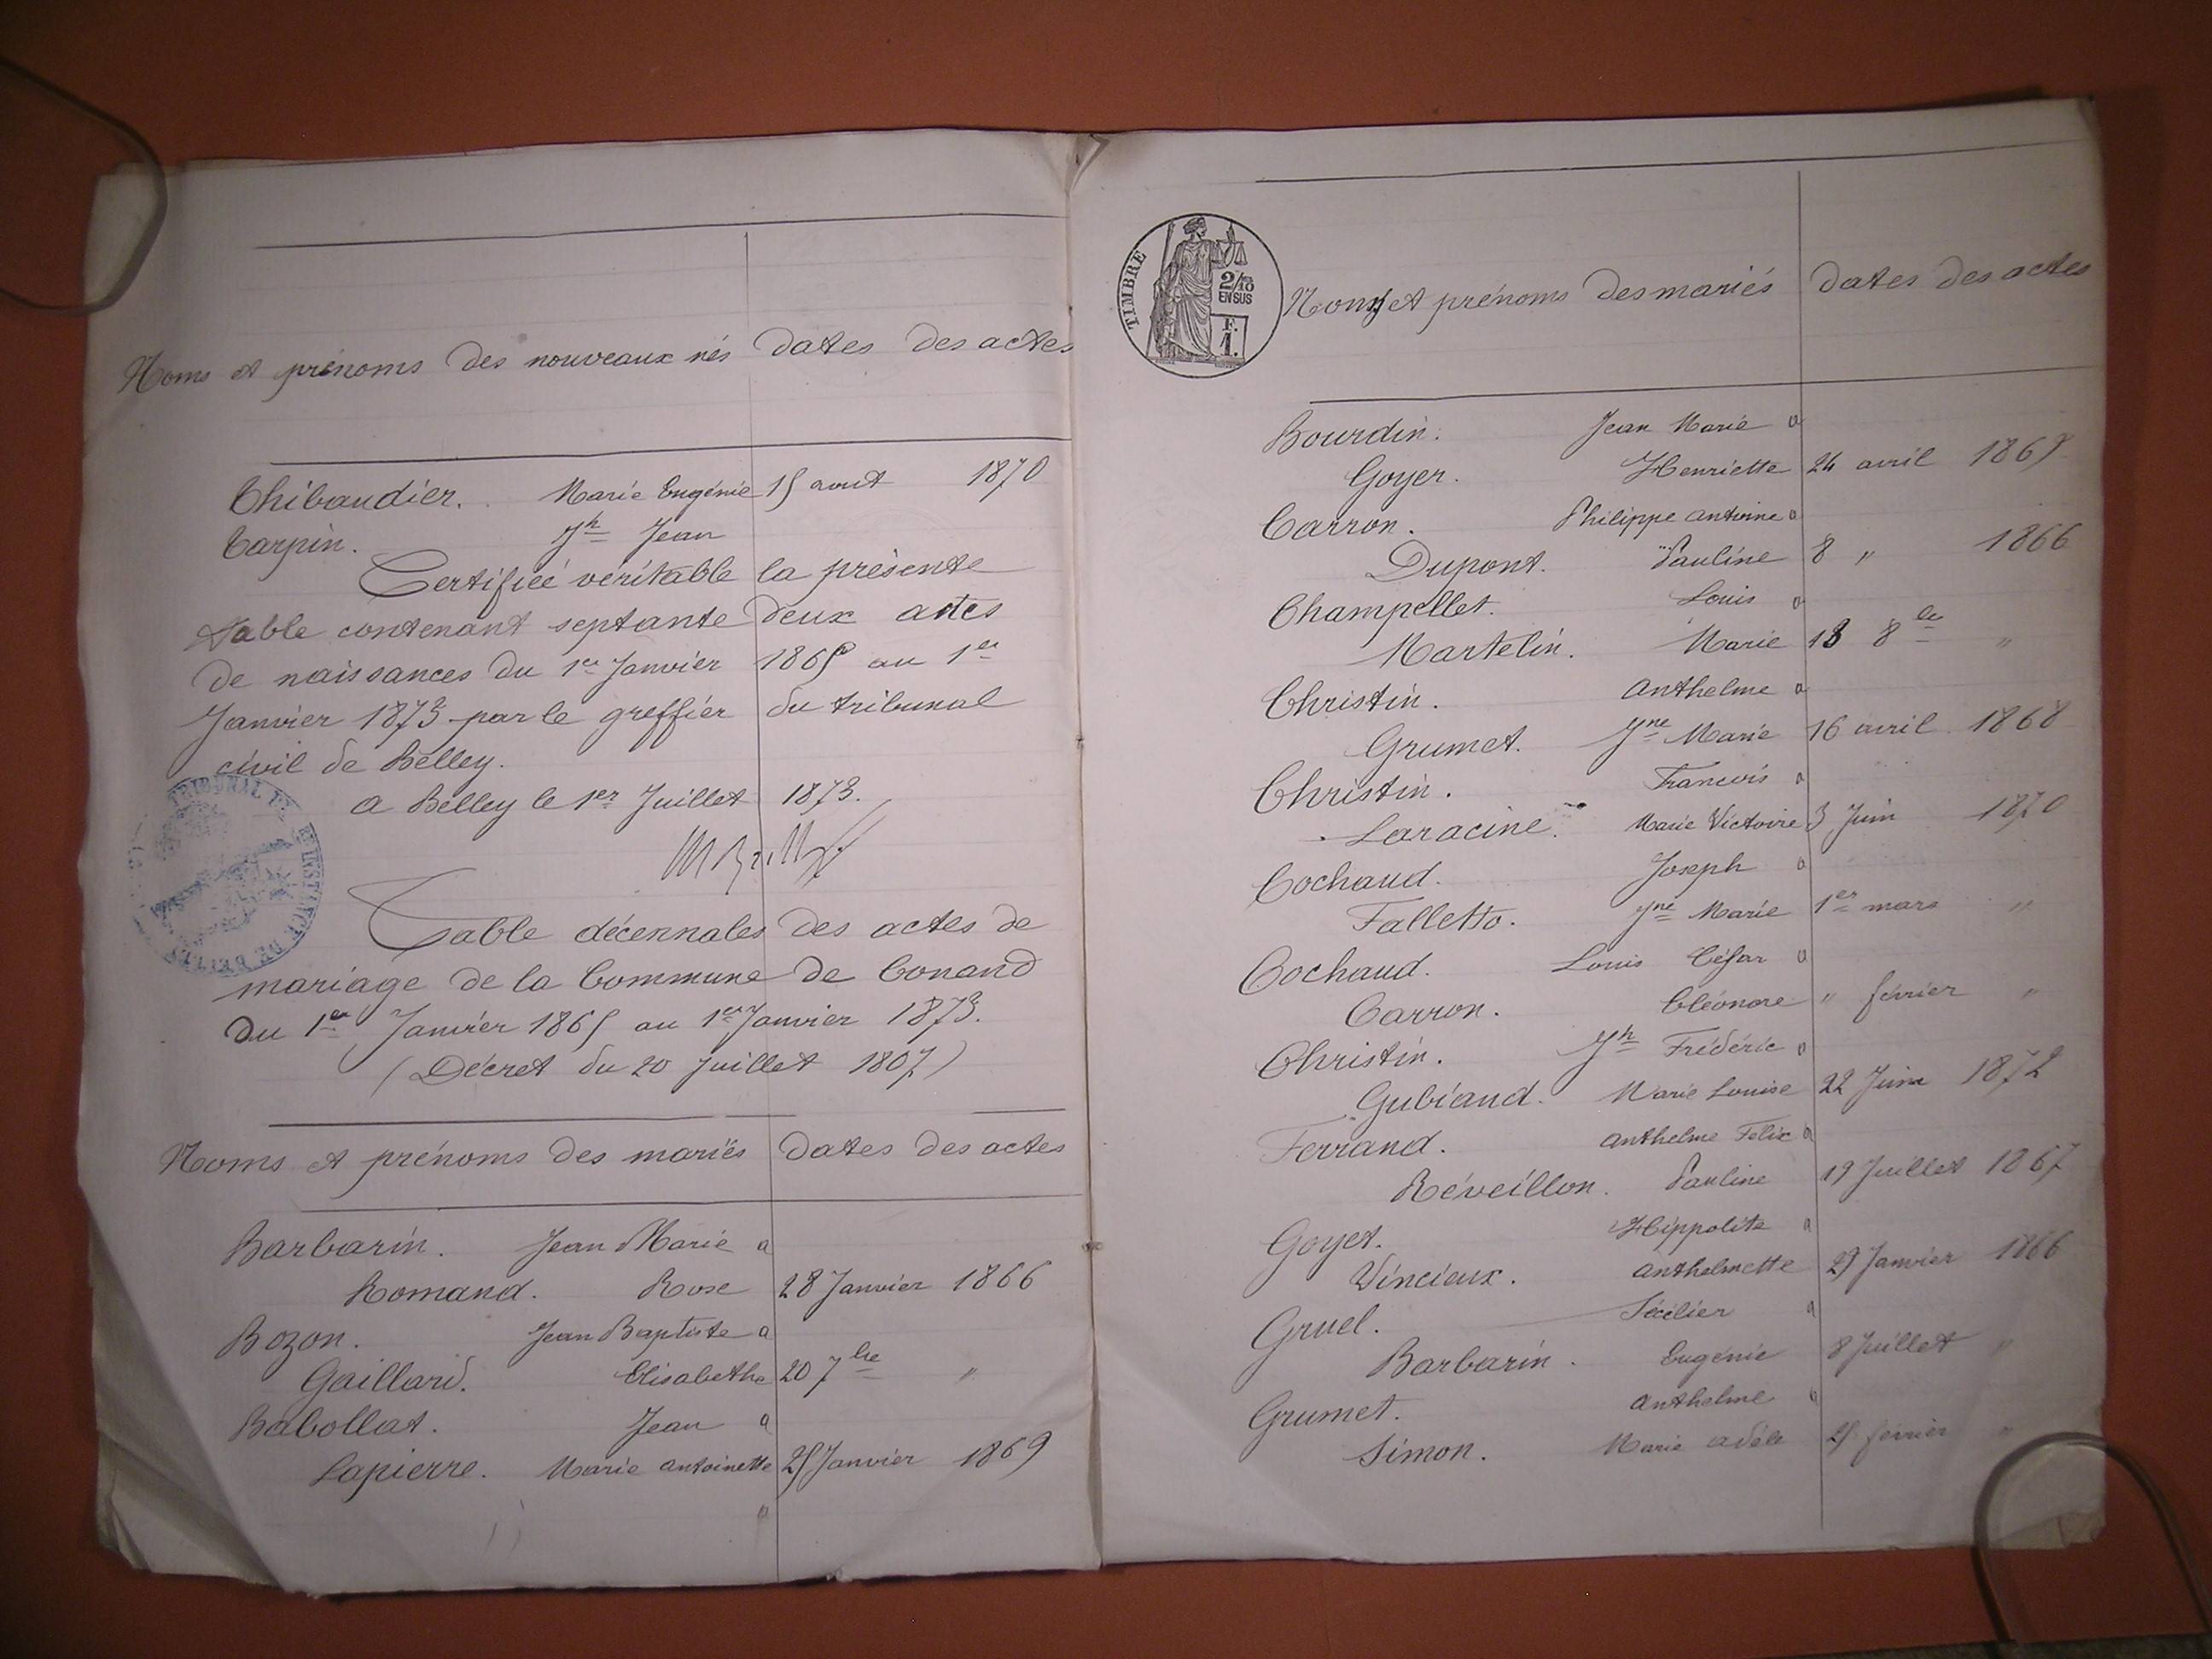 Noms et prénoms des nouveaux nés dates des actes
Thibaudier. Marie Eugénie 15 aout 1870
Carpin. Jh Jean
Certifiée véritable la présente
table contenant septante deux actes
de naissances du 1er Janvier 1865 au 1er
Janvier 1873 par le greffier du tribunal
civil de Belley.
a Belley le 1er Juillet 1873.
TRIBUNAL INSTANCE DE BELLEY
Table décennales des actes de
mariage de la Commune de Conand
du 1er Janvier 1865 au 1er Janvier 1873.
(Décret du 20 Juillet 1807)
Noms et prénoms des mariés dates des actes
Barbarin. Jean Marie a
Romand. Rose 28 Janvier 1866
Bozon. Jean Baptiste a
Gaillard. Elisabethe 20 7bre "
Babollat. Jean a
Lapierre. Marie antoinette 25 Janvier 1869
a
TIMBRE
2/10
EN SUS
F.
1.
Noms et prénoms des mariés dates des actes
Bourdin. Jean Marie a
Goyer. Henriette 24 avril 1865
Carron. Philippe antoine a
Dupont. Pauline 8 " 1866
Champellet. Louis a
Martelin. Marie 18 8bre "
Christin. anthelme a
Grumet. Jne Marie 16 avril 1868
Christin. Francois a
Laracine. Marie Victoire 3 Juin 1870
Cochaud. Joseph a
Falletto. Jne Marie 1er mars "
Cochaud. Louis César a
Carron. Cléonore " février "
Christin. Jh Frédéric a
Gubiand. Marie Louise 22 Juin 1872
Ferrand. anthelme Felix a
Réveillon. Pauline 19 Juillet 1867
Goyet. Hippolite a
Vincieux. anthelmette 29 Janvier 1866
Gruel. a
Barbarin. Eugénie 8 Juillet "
Grumet. anthelme a
Simon. Marie adèle 25 février "